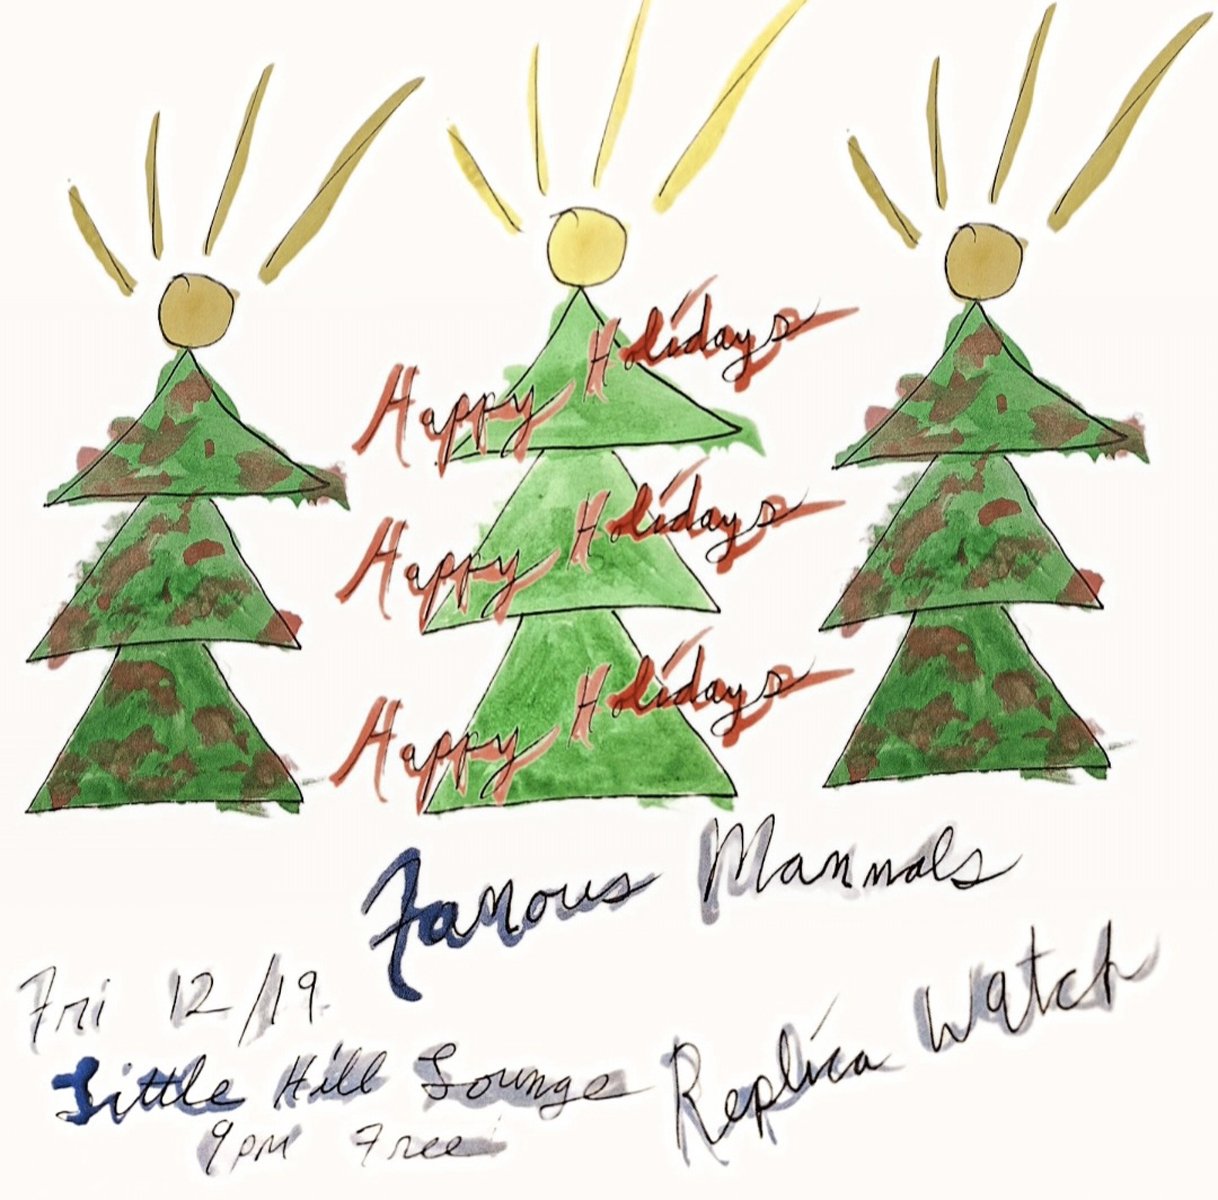 Happy Holidays
Happy Holidays
Happy Holidays
Famous Mammals
Fri 12/19
Little Hill Lounge
9pm Free
Replica Watch